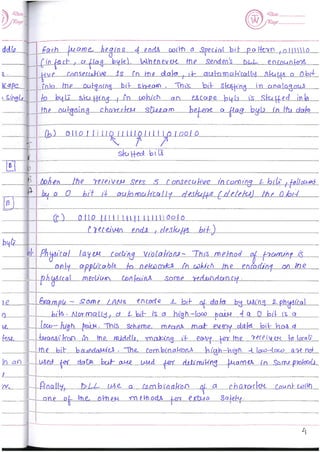 Each frame begins & ends with a special bit pattern, 01111110
(in fact, a flag byte). Whenever the sender's DLL encounters
five consecutive 1s in the data, it automatically stuffs a 0 bit
into the outgoing bit stream. This bit stuffing is analogous
to byte stuffing, in which an escape byte is stuffed into
the outgoing character stream before a flag byte in the data
(b) 
stuffed bits
When the receiver sees 5 consecutive incoming 1 bits, followed
by a 0 bit it automatically destuffs (deletes) the 0 bit
(c) 
(receiver ends, destuffs bit)
Physical layer coding violations - This method of framing is
only applicable to networks in which the encoding on the
physical medium contains some redundancy.
Example - Some LANs encode 1 bit of data by using 2 physical
bits. Normally, a 1 bit is a high-low pair & a 0 bit is a
low-high pair. This scheme means that every data bit has a
transition in the middle, making it easy for the receiver to locate
the bit boundaries. The combinations high-high & low-low are not
used for data but are used for delimiting frames in some protocols.
Finally, DLL use a combination of a character count with
one of the other methods for extra safety.
4